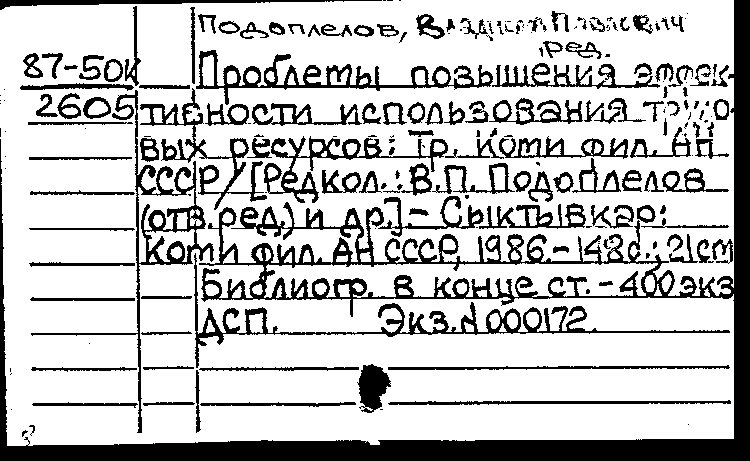 Подоплелов, Владимир Павлович
ред.
87-50к Проблемы повышения эффек-
2605 тивности использования трудо-
вых ресурсов: Тр. Коми фил. АН
СССР / [Редкол.: В.П. Подоплелов
(отв.ред.) и др.] - Сыктывкар:
Коми фил. АН СССР, 1986.-148с.; 21см
Библиогр. в конце ст. - 400 экз
ДСП. Экз.N 000172.